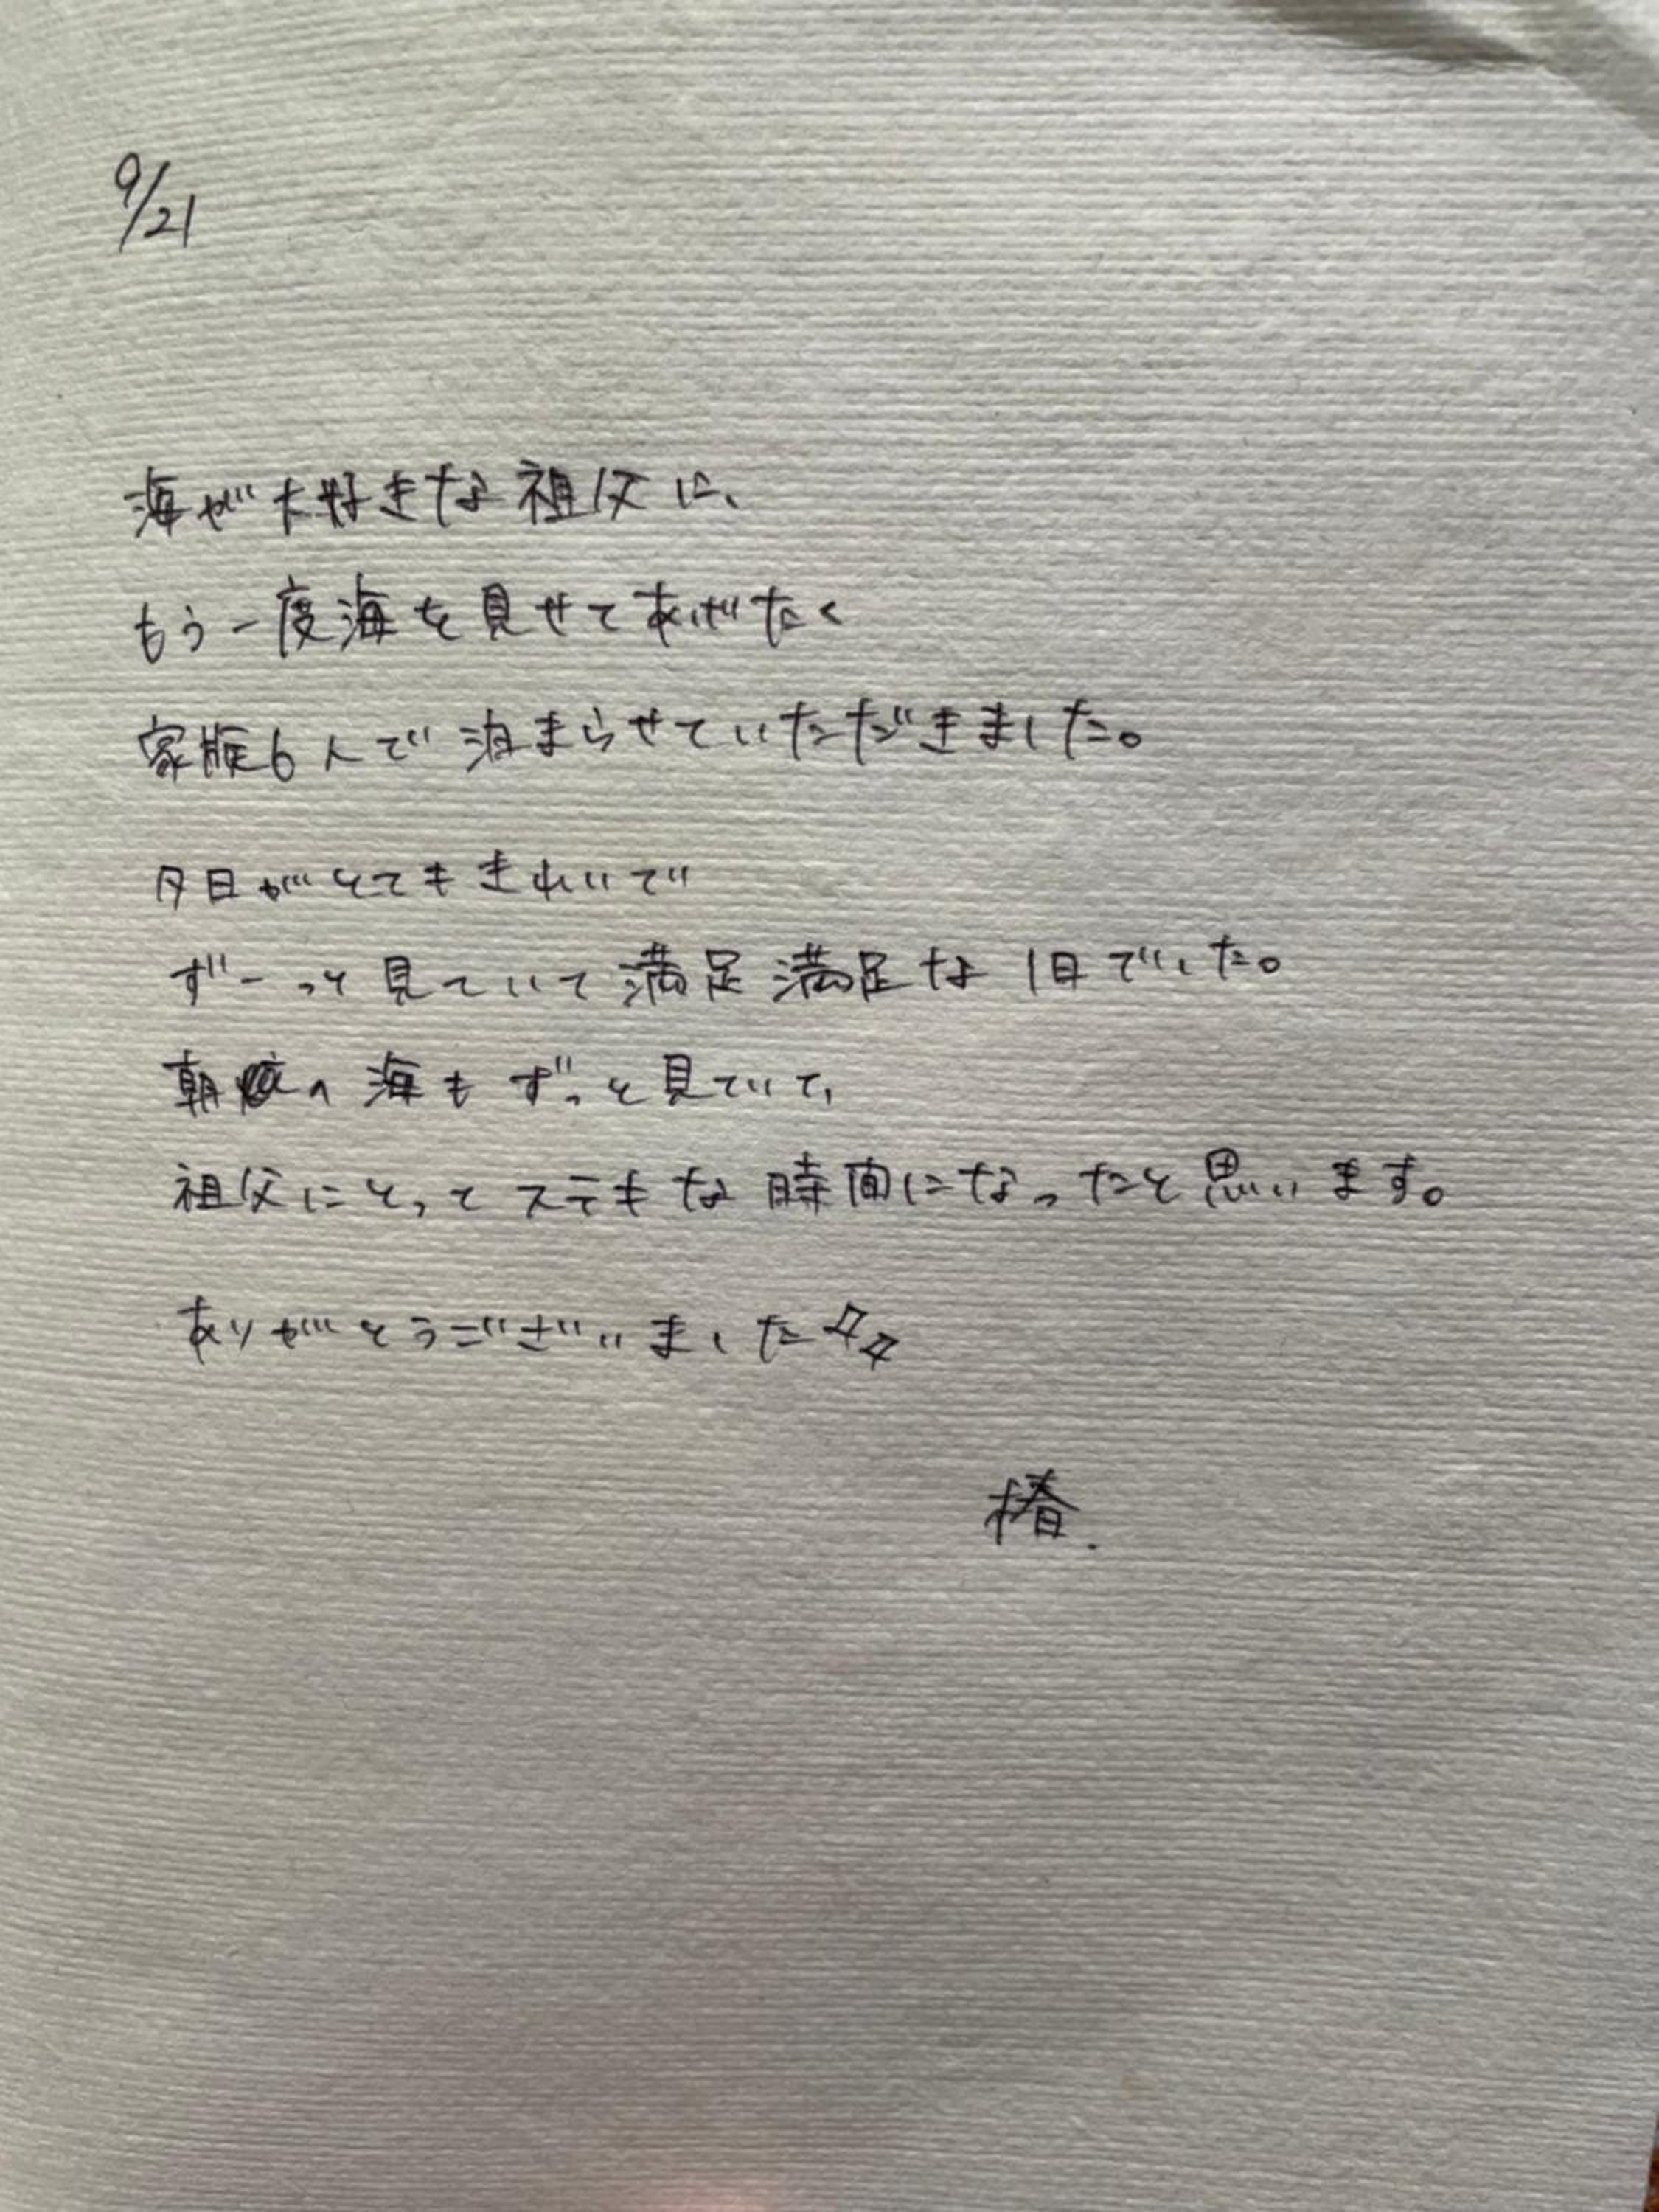 9/21
海が大好きな祖父に、
もう一度海を見せてあげたく
家族6人で泊まらせていただきました。
夕日がとてもきれいで
ずーっと見ていて満足満足な1日でした。
朝の海もずっと見ていて、
祖父にとってステキな時間になったと思います。
ありがとうございました
椿.